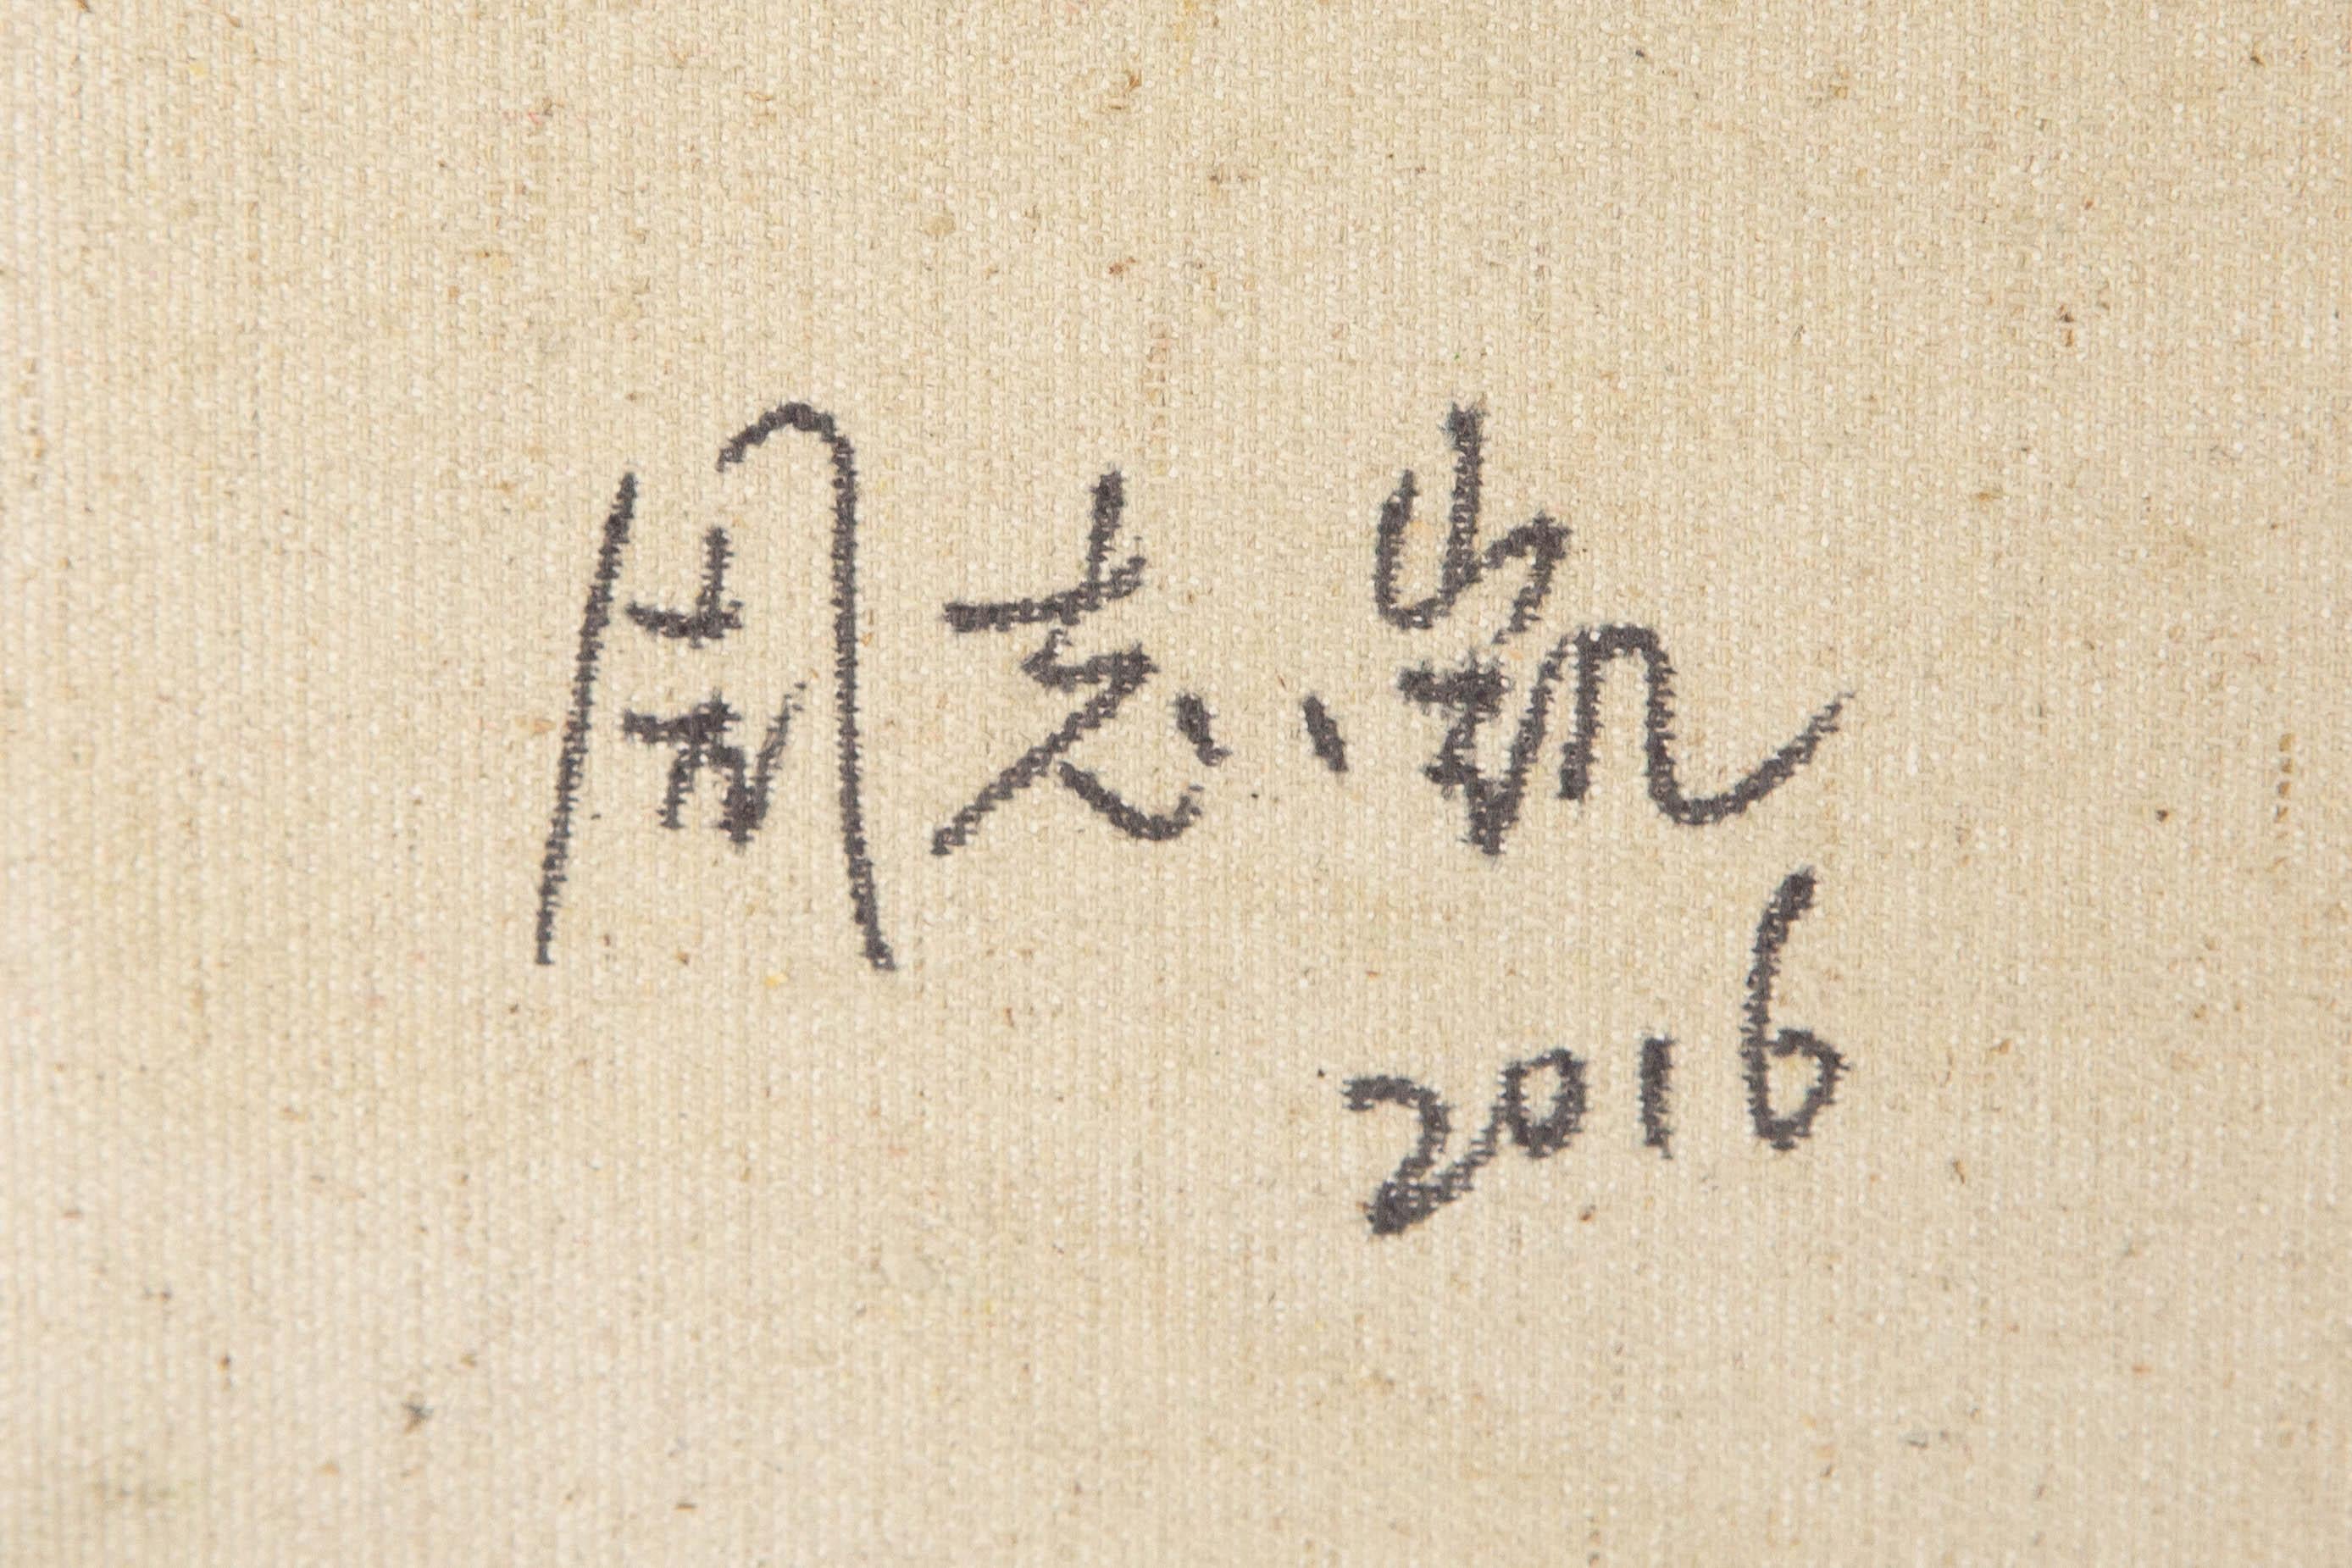 周志凯
2016